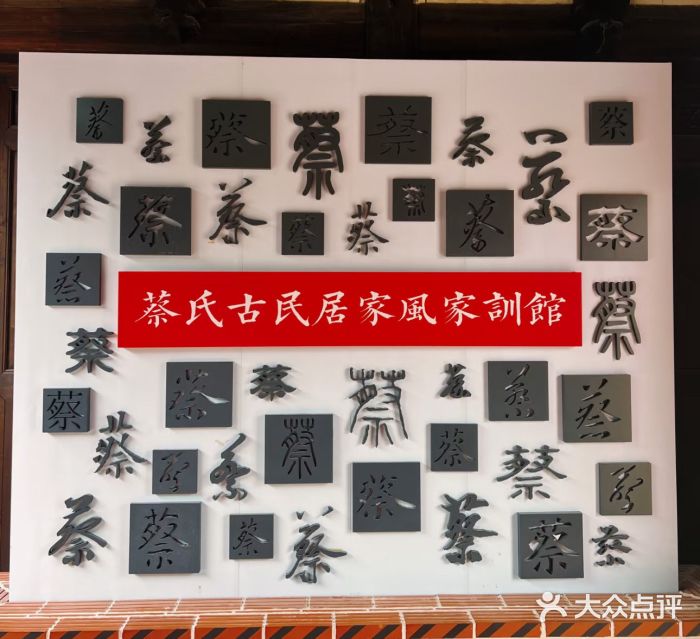 蔡 蔡 蔡 蔡 蔡 蔡 蔡 蔡
蔡 蔡 蔡 蔡 蔡 蔡 蔡 蔡
蔡
蔡氏古民居家風家訓館
蔡
蔡 蔡 蔡 蔡 蔡 蔡 蔡
蔡
蔡 蔡 蔡 蔡 蔡 蔡 蔡
蔡 蔡 蔡 蔡 蔡 蔡 蔡 蔡
大众点评